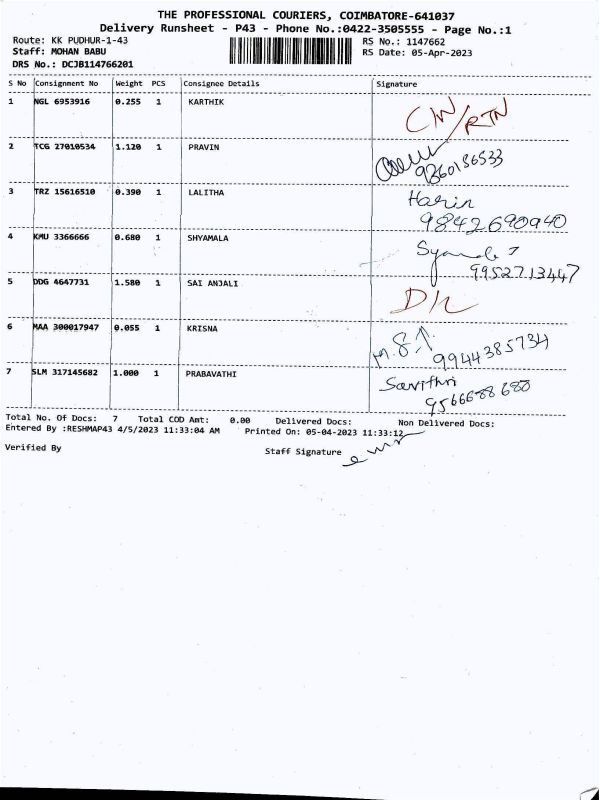 THE PROFESSIONAL COURIERS, COIMBATORE-641037
Delivery Runsheet - P43 - Phone No.:0422-3505555 - Page No.:1
Route: KK PUDHUR-1-43 RS No.: 1147662
Staff: MOHAN BABU RS Date: 05-Apr-2023
DRS No.: DCJB114766201
S No Consignment No Weight PCS Consignee Details Signature
1 NGL 6953916 0.255 1 KARTHIK CN/RTN
2 TCG 27010534 1.120 1 PRAVIN 9360136533
3 TRZ 15616510 0.390 1 LALITHA Harin
9842690940
4 KMU 3366666 0.680 1 SHYAMALA
9952713447
5 DDG 4647731 1.580 1 SAI ANJALI D/L
6 MAA 300017947 0.055 1 KRISNA 9944385734
7 SLM 317145682 1.000 1 PRABAVATHI Savithri
9566688688
Total No. Of Docs: 7 Total COD Amt: 0.00 Delivered Docs: Non Delivered Docs:
Entered By :RESHMAP43 4/5/2023 11:33:04 AM Printed On: 05-04-2023 11:33:12
Verified By Staff Signature